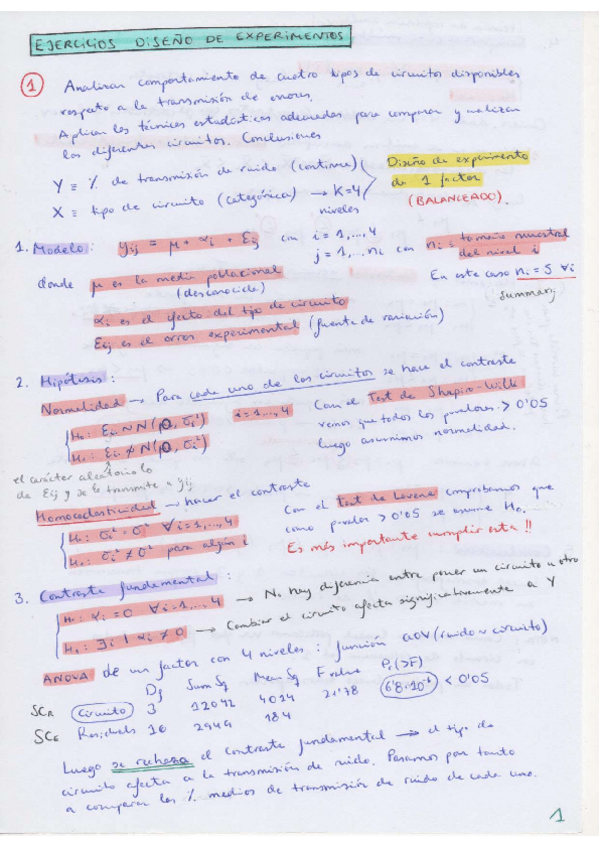 EJERCICIOS DISEÑO DE EXPERIMENTOS
1 Analizar comportamiento de cuatro tipos de circuitos disponibles
respecto a la transmisión de errores.
Aplicar las técnicas estadísticas adecuadas para comparar y analizar
los diferentes circuitos. Conclusiones
Y ≡ % de transmisión de ruido (continue)
X ≡ tipo de circuito (categórica) → K=4
niveles
Diseño de experimento
de 1 factor
(BALANCEADO).
1. Modelo: yij = μ + αi + Eij con i = 1,...,4
j = 1,...ni con ni = tamaño muestral
del nivel i
donde μ es la media poblacional
(desconocida)
En este caso ni = 5 ∀i
summary
αi es el efecto del tipo de circuito
Eij es el error experimental (fuente de variación)
2. Hipótesis:
Normalidad → Para cada uno de los circuitos se hace el contraste
H0: Ei ~ N(0, σi²) i=1,...,4
H1: Ei ≁ N(0, σi²)
Con el Test de Shapiro-Wilk
vemos que todos los pvalores > 0'05
luego asumimos normalidad.
el carácter aleatorio lo
da Eij y se lo transmite a yij
Homocedasticidad → hacer el contraste
H0: σi² = σ² ∀i=1,...,4
H1: σi² ≠ σ² para algún i
Con el Test de Levene comprobamos que
como pvalor > 0'05 se asume H0.
Es más importante cumplir esta!!
3. Contraste fundamental:
H0: αi = 0 ∀i=1,...,4 → No hay diferencia entre poner un circuito u otro
H1: ∃i | αi ≠ 0 → Cambiar el circuito afecta significativamente a Y
ANOVA de un factor con 4 niveles: función aov(ruido~circuito)
Df Sum Sq Mean Sq F value Pr(>F)
SCA Circuito 3 12042 4014 21'78 6'8·10⁻⁶ < 0'05
SCE Residuals 16 2949 184
Luego se rechaza el contraste fundamental → el tipo de
circuito afecta a la transmisión de ruido. Pasamos por tanto
a comparar los % medios de transmisión de ruido de cada uno.
1